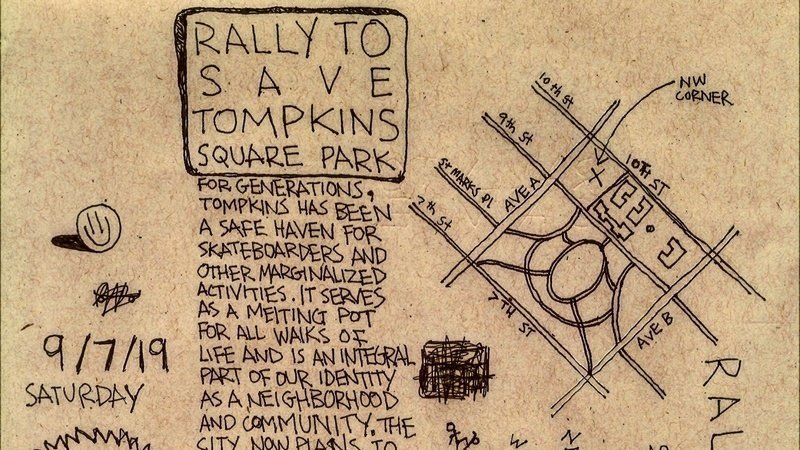 RALLY TO
SAVE
TOMPKINS
SQUARE PARK
FOR GENERATIONS,
TOMPKINS HAS BEEN
A SAFE HAVEN FOR
SKATEBOARDERS AND
OTHER MARGINALIZED
ACTIVITIES. IT SERVES
AS A MELTING POT
FOR ALL WALKS OF
LIFE AND IS AN INTEGRAL
PART OF OUR IDENTITY
AS A NEIGHBORHOOD
AND COMMUNITY. THE
CITY NOW PLANS TO
9/7/19
SATURDAY
NW
CORNER
10th ST
9th ST
ST MARKS Pl
7th ST
AVE A
X
10TH ST
7TH ST
AVE B
RAL